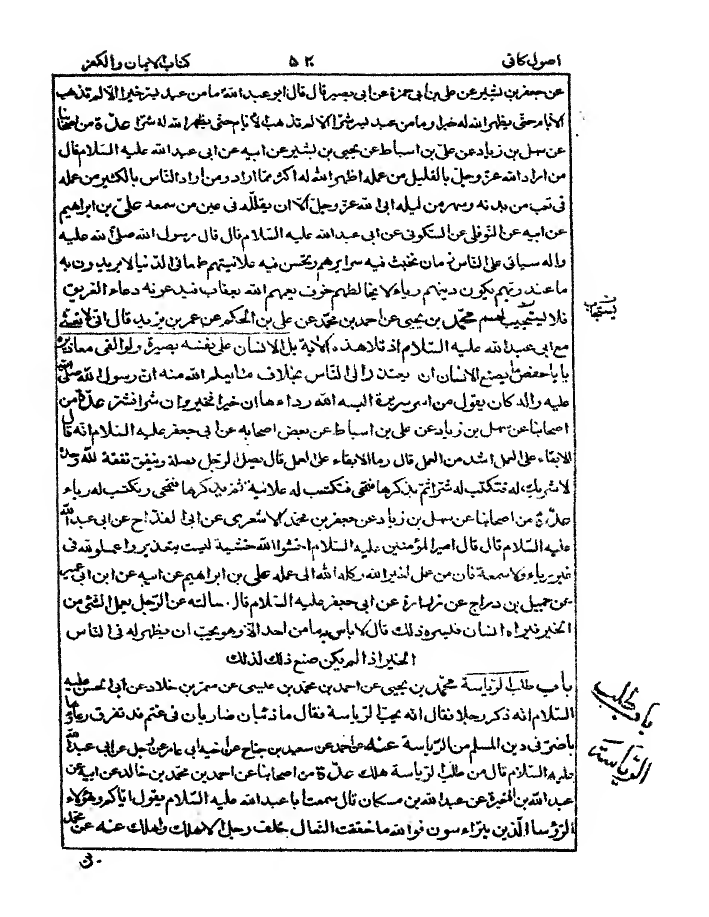 اصول كافى ٥٢٠ كتاب الايمان والكفر
عن جعفر بن بشير عن على بن ابى حمزة عن ابى بصير قال قال ابو عبد الله ما من عبد يسر خيرا الا لم تذهب
الايام حتى يظهر الله له خيرا وما من عبد يسر شرا الا لم تذهب الايام حتى يظهر الله له شرا عدّة من اصحابنا
عن سهل بن زياد عن علىّ بن اسباط عن يحيى بن بشير عن ابيه عن ابى عبد الله عليه السّلام قال
من اراد الله عزّ وجلّ بالقليل من عمله اظهر الله له اكثر ممّا اراد ومن اراد النّاس بالكثير من عمله
فى تعب من بدنه وسهر من ليله ابى الله عزّ وجلّ الا ان يقلّله فى عين من سمعه علىّ بن ابراهيم
عن ابيه عن النّوفلى عن السّكونى عن ابى عبد الله عليه السّلام قال قال رسول الله صلّى الله عليه
واله سياتى على النّاس زمان تخبث فيه سرايرهم وتحسن فيه علانيتهم طمعا فى الدّنيا لا يريدون به
ما عند ربّهم يكون دينهم رياء لا يخالطهم خوف يعمهم الله بعقاب فيدعونه دعاء الغريق
فلا يستجيب لهم محمّد بن يحيى عن احمد بن محمّد عن على بن الحكم عن عمر بن يزيد قال انى لاتعشّى
مع ابى عبد الله عليه السّلام اذ تلا هذه الاية بل الانسان على نفسه بصيرة ولو القى معاذيره
يا ابا حفص ما يصنع الانسان ان يعتذر الى النّاس بخلاف ما يعلم الله منه انّ رسول الله صلى الله
عليه واله كان يقول من اسر سريرة البسه الله رداءها ان خيرا فخير وان شرا فشر عدّة من
اصحابنا عن سهل بن زياد عن على بن اسباط عن بعض اصحابه عن ابى جعفر عليه السّلام انه قال
الابقاء على العمل اشد من العمل قال وما الابقاء على العمل قال يصل الرّجل بصلة وينفق نفقة لله وحده
لا شريك له فتكتب له سرّا ثمّ يذكرها فتمحى فتكتب له علانية ثم يذكرها فتمحى وتكتب له رياء
عدّة من اصحابنا عن سهل بن زياد عن جعفر بن محمّد الاشعرى عن ابى القداح عن ابى عبد الله
عليه السّلام قال قال امير المؤمنين عليه السّلام اخشوا الله خشية ليست بتعذير واعملو لله فى
غير رياء ولا سمعة فان من عمل لغير الله وكله الله الى عمله على بن ابراهيم عن ابيه عن ابن ابى عمير
عن جميل بن دراج عن زرارة عن ابى جعفر عليه السّلام قال سالته عن الرّجل يعمل الشّئ من
الخير فيراه انسان فليسره ذلك قال لا باس ما من احد الا وهو يحبّ ان يظهر له فى النّاس
الخير اذا لم يكن صنع ذلك لذلك
باب طلب الرّياسة محمّد بن يحيى عن احمد بن محمد بن عليسى عن معمر بن خلاد عن ابى الحسن عليه
السّلام انه ذكر رجلا فقال انه يحبّ الرّياسة فقال ما ذئبان ضاريان فى غنم قد تفرق رعاؤها
باضرّ فى دين المسلم من الرّياسة عنه عن احمد عن سعيد بن جناح عن اخيه ابى عامر عن رجل عن ابى عبد الله
عليه السّلام قال من طلب الرّياسة هلك عدّة من اصحابنا عن احمد بن محمّد بن خالد عن ابيه عن
عبد الله بن المغيرة عن عبد الله بن مسكان قال سمعت ابا عبد الله عليه السّلام يقول اياكم وهؤلاء
الرّؤسا الّذين يتراءسون فوالله ما خفقت النّعال خلف رجل الا هلك واهلك عنه عن محمّد
يستجاب
باب طلب
الرّياسة
بن